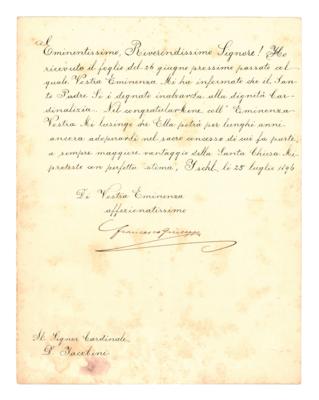 Eminentissimo, Riverendissimo Signore! Ho
ricevuto il foglio del 26 giugno prossimo passato col
quale Vostra Eminenza Mi ha informato che il San-
to Padre Si è degnato inalzarla alla dignità Car-
dinalizia. Nel congratularmene coll' Eminenza
Vostra Mi lusingo che Ella potrà per lunghi anni
ancora adoperarsi nel sacro consesso di cui fa parte,
a sempre maggiore vantaggio della Santa Chiesa. Mi
protesto con perfetta stima, Ischl li 28 luglio 1896
Di Vostra Eminenza
affezionatissimo
Francesco Giuseppe
Al Signor Cardinale
D. Jacobini